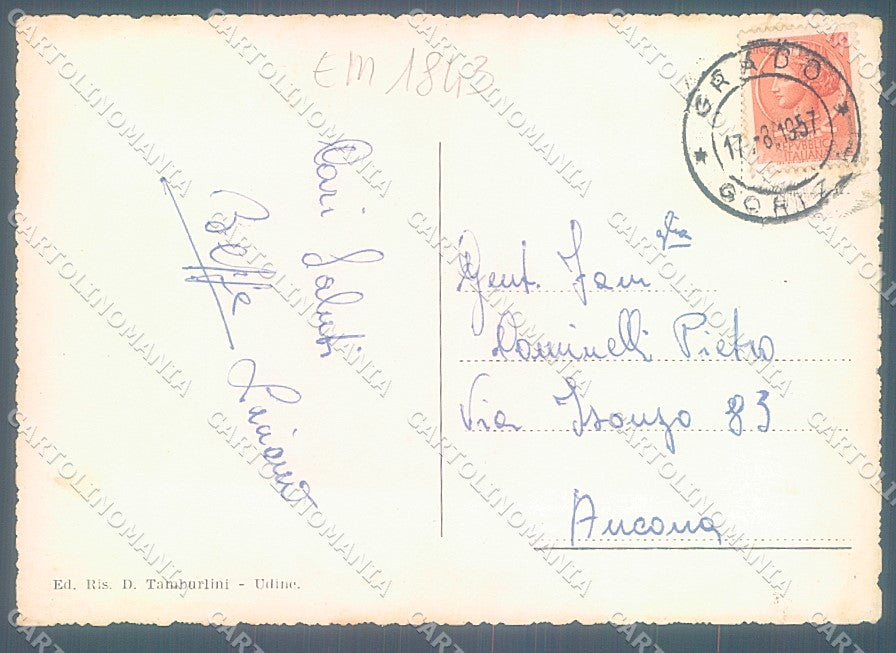 EM 1843
Cari Saluti
Beppe
Luciano
GRADO
17.-8.1957
GORIZ
REPVBBLICA
ITALIANA
Gent. Fam glia
Dominelli Pietro
Via Isonzo 83
Ancona
Ed. Ris. D. Tamburlini - Udine.
CARTOLINOMANIA